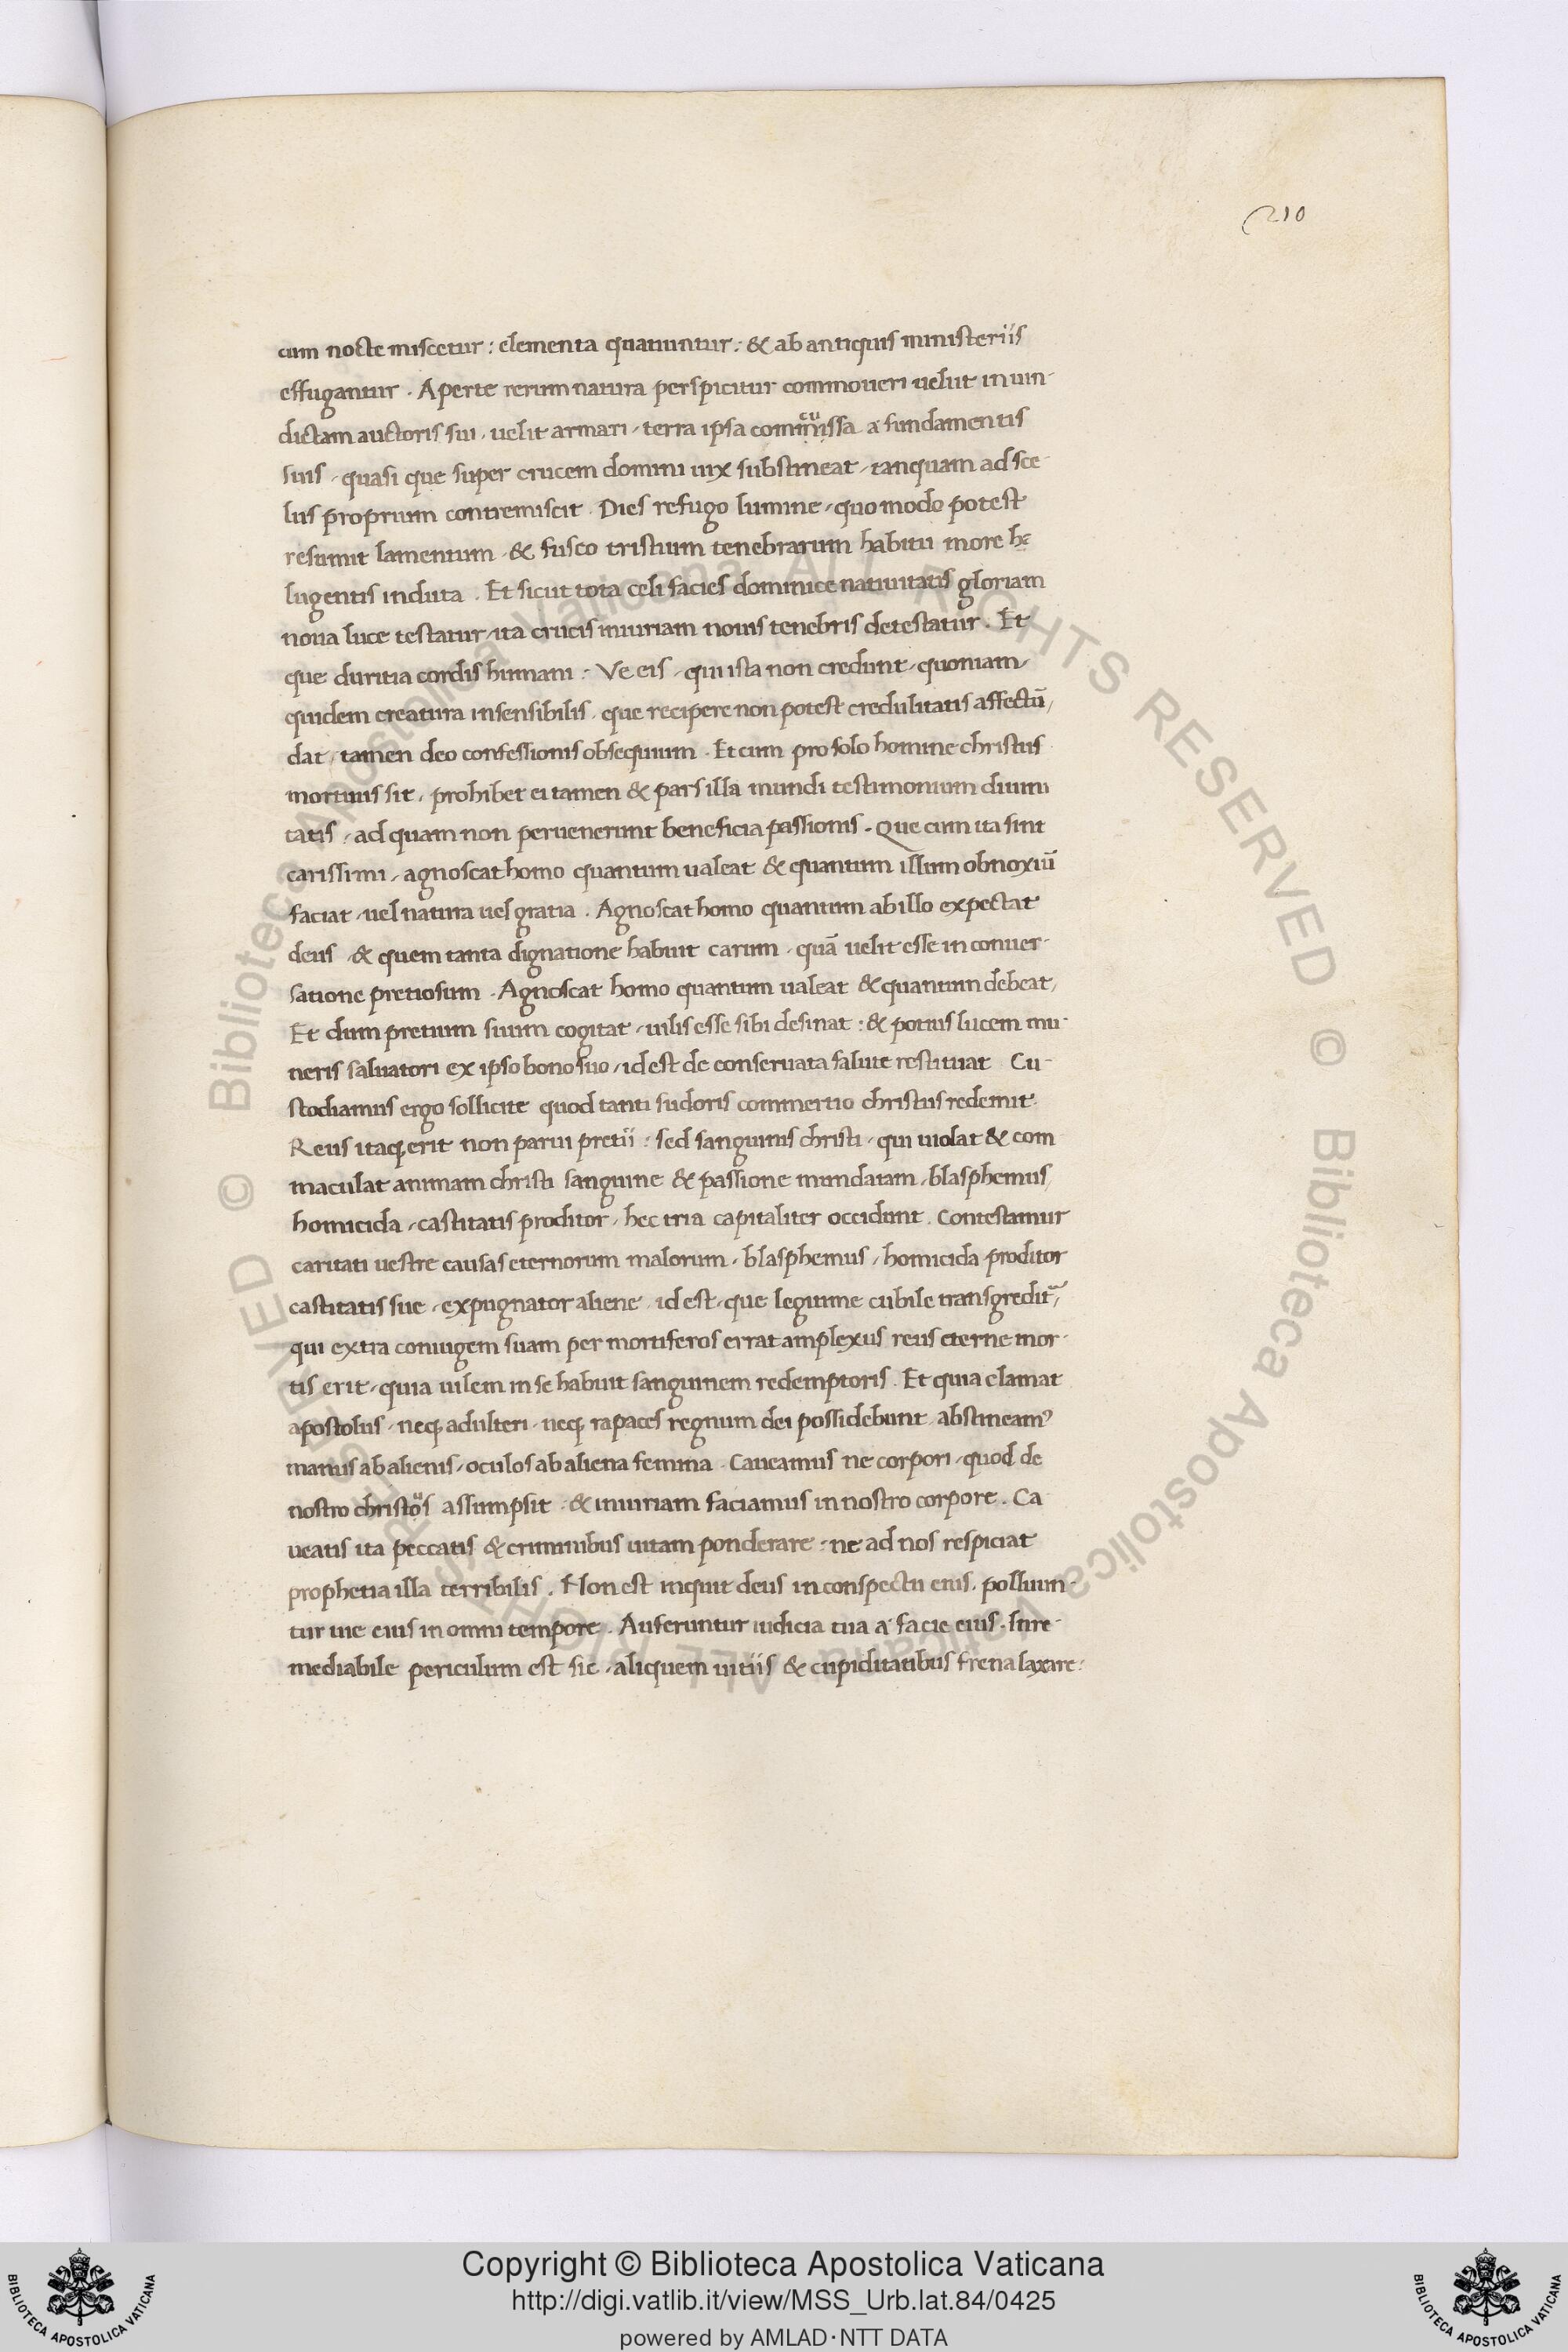 210
cum nocte miscetur : elementa quatiuntur : & ab antiquis ministeriis
effugantur . Aperte rerum natura perspicitur commoueri uelut in uin-
dictam auctoris sui , uelit armari , terra ipsa commissa a fundamentis
suis , quasi que super crucem domini uix substineat , tanquam ad sce-
lus proprium contremiscit . Dies refugo lumine , quo modo potest
resumit lamentum , & fusco tristium tenebrarum habitu more
lugentis induta . Et sicut tota celi facies dominice natiuitatis gloriam
noua luce testatur , ita crucis iniuriam nouis tenebris detestatur . Et
que duritia cordis humani : Ve eis , qui ista non credunt , quoniam ,
quidem creatura insensibilis , que recipere non potest credulitatis affectū ,
dat , tamen deo confessionis obsequium . Et cum pro solo homine christus
mortuus sit , prohibet ei tamen & pars illa mundi testimonium diuini
tatis , ad quam non peruenerunt beneficia passionis . Que cum ita sint
carissimi , agnoscat homo quantum ualeat & quantum illum obnoxiū
faciat , uel natura uel gratia . Agnoscat homo quantum ab illo expectat
deus , & quem tanta dignatione habuit carum , quā uelit esse in conuer-
satione pretiosum . Agnoscat homo quantum ualeat & quantum debeat ,
Et dum pretium suum cogitat , uilis esse sibi desinat : & potius lucem mu-
neris saluatori ex ipso bono suo , id est de conseruata salute restituat Cu-
stodiamus ergo sollicite quod tanti sudoris commertio christus redemit .
Reus itaq; erit non parui pretii : sed sanguinis christi , qui uiolat & com
maculat animam christi sanguine & passione mundatam , blasphemus ,
homicida , castitatis proditor , hec tria capitaliter occidunt . Contestamur
caritati uestre causas eternorum malorum , blasphemus , homicida proditor
castitatis sue , expugnator aliene , id est , que legitime cubile transgredit᷑ ,
qui extra coniugem suam per mortiferos errat amplexus reus eterne mor-
tis erit , quia uilem in se habuit sanguinem redemptoris . Et quia clamat
apostolus , neq; adulteri , neq; rapaces regnum dei possidebunt , abstineamꝰ
manus ab alienis , oculos ab aliena femina . Caueamus ne corpori , quod de
nostro christus assumpsit , & iniuriam faciamus in nostro corpore . Ca
ueatis ita peccatis & criminibus uitam ponderare , ne ad nos respiciat
prophetia illa terribilis . Non est inquit deus in conspectu eius , polluun-
tur uie eius in omni tempore . Auferuntur iudicia tua a facie eius . Inre-
mediabile periculum est sic , aliquem uitiis & cupiditatibus frena laxare :
© Biblioteca Apostolica Vaticana ALL RIGHTS RESERVED
© Biblioteca Apostolica Vaticana ALL RIGHTS RESERVED
Copyright © Biblioteca Apostolica Vaticana
http://digi.vatlib.it/view/MSS_Urb.lat.84/0425
powered by AMLAD·NTT DATA
BIBLIOTECA APOSTOLICA VATICANA
BIBLIOTECA APOSTOLICA VATICANA